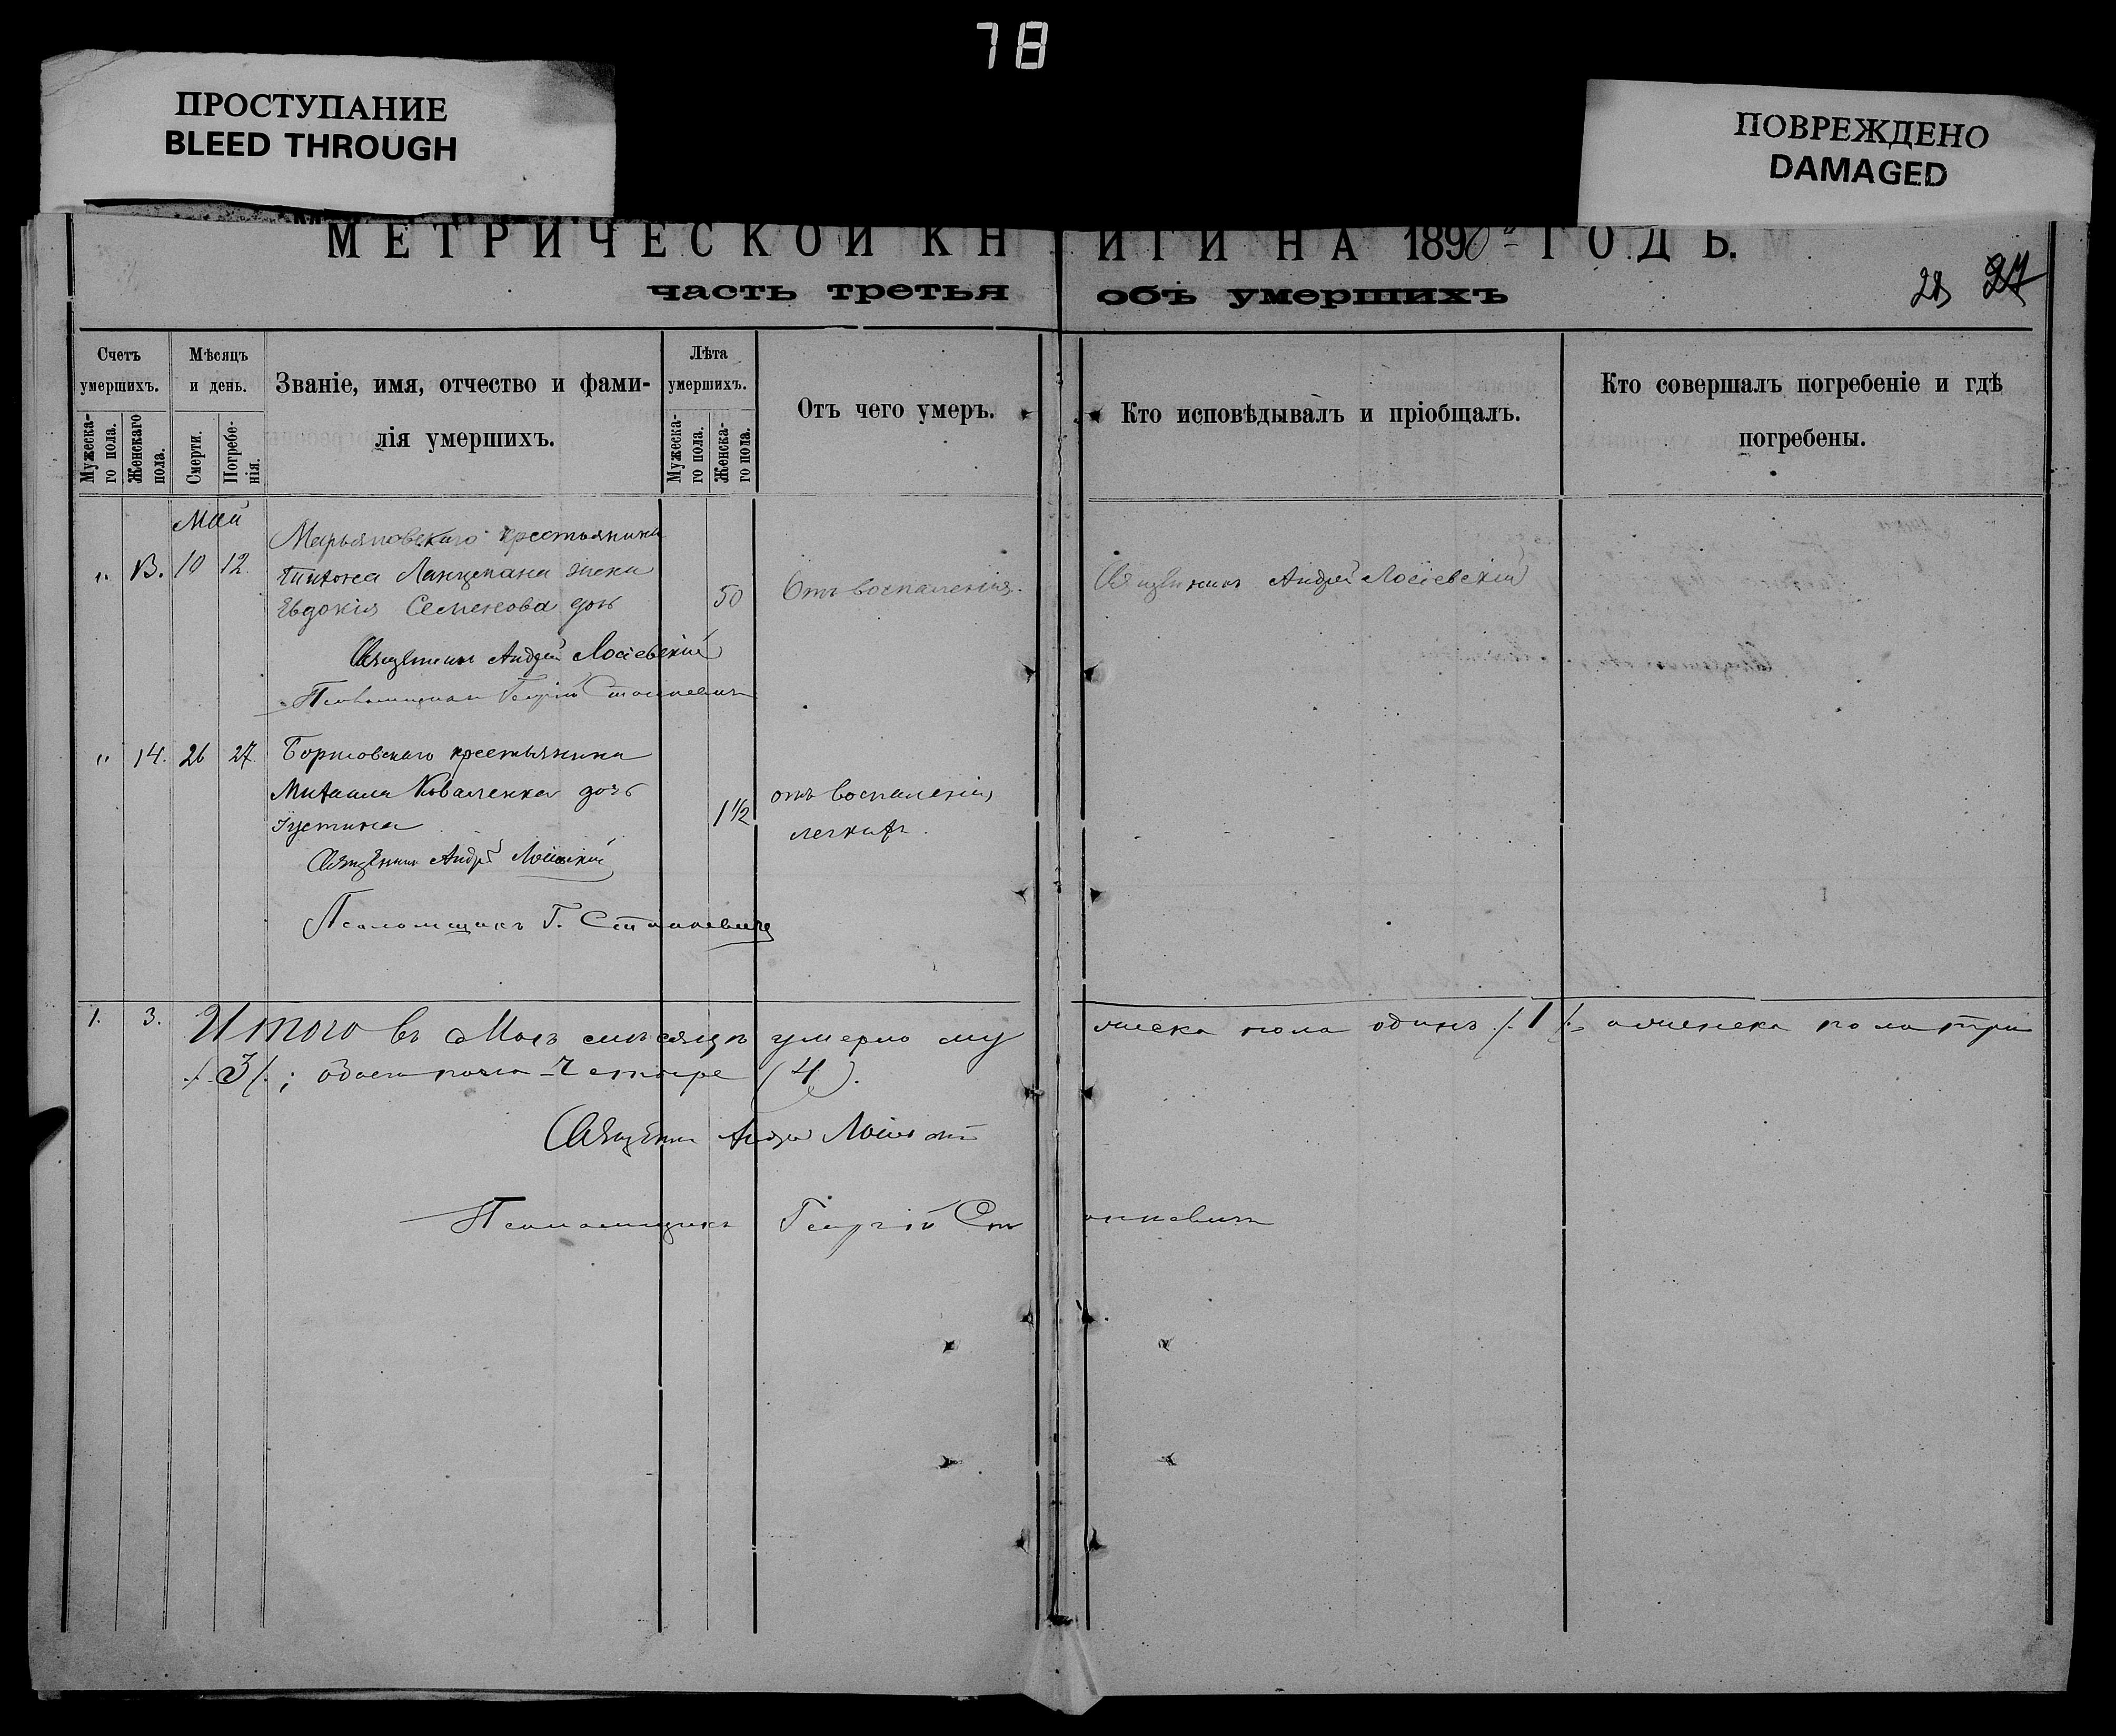 78
ПРОСТУПАНИЕ
BLEED THROUGH
ПОВРЕЖДЕНО
DAMAGED
МЕТРИЧЕСКОЙ КНИГИ НА 1890й ГОДЪ.
часть третья объ умершихъ
28 27
Счетъ умершихъ.
Мужеска-го пола.
Женскаго пола.
Мѣсяцъ и день.
Смерти.
Погребе-нія.
Званіе, имя, отчество и фами-
лія умершихъ.
Лѣта умершихъ.
Мужеска-го пола.
Женска-го пола.
Отъ чего умеръ.
Кто исповѣдывалъ и пріобщалъ.
Кто совершалъ погребеніе и гдѣ
погребены.
Май
Марьяновскаго крестьянина
„ 13. 10 12. жена
Евдокія Семенова 50 Отъ воспаленія. Священникъ Андрей Лосіевскій
Священникъ Андрей Лосіевскій
Псаломщикъ Георгій Станкевичъ
„ 14. 26 27. крестьянина
Михаила Коваленка дочь 1½ отъ воспаленія
Іустина легкихъ.
Священникъ Андрей Лосіевскій
Псаломщикъ Г. Станкевичъ
1. 3. Итого въ Маѣ мѣсяцѣ умерло мужеска пола одинъ /.1/. а женска пола три
/.3/.; обоего пола четыре (4).
Священникъ Андрей Лосіевскій
Псаломщикъ Георгій Станкевичъ